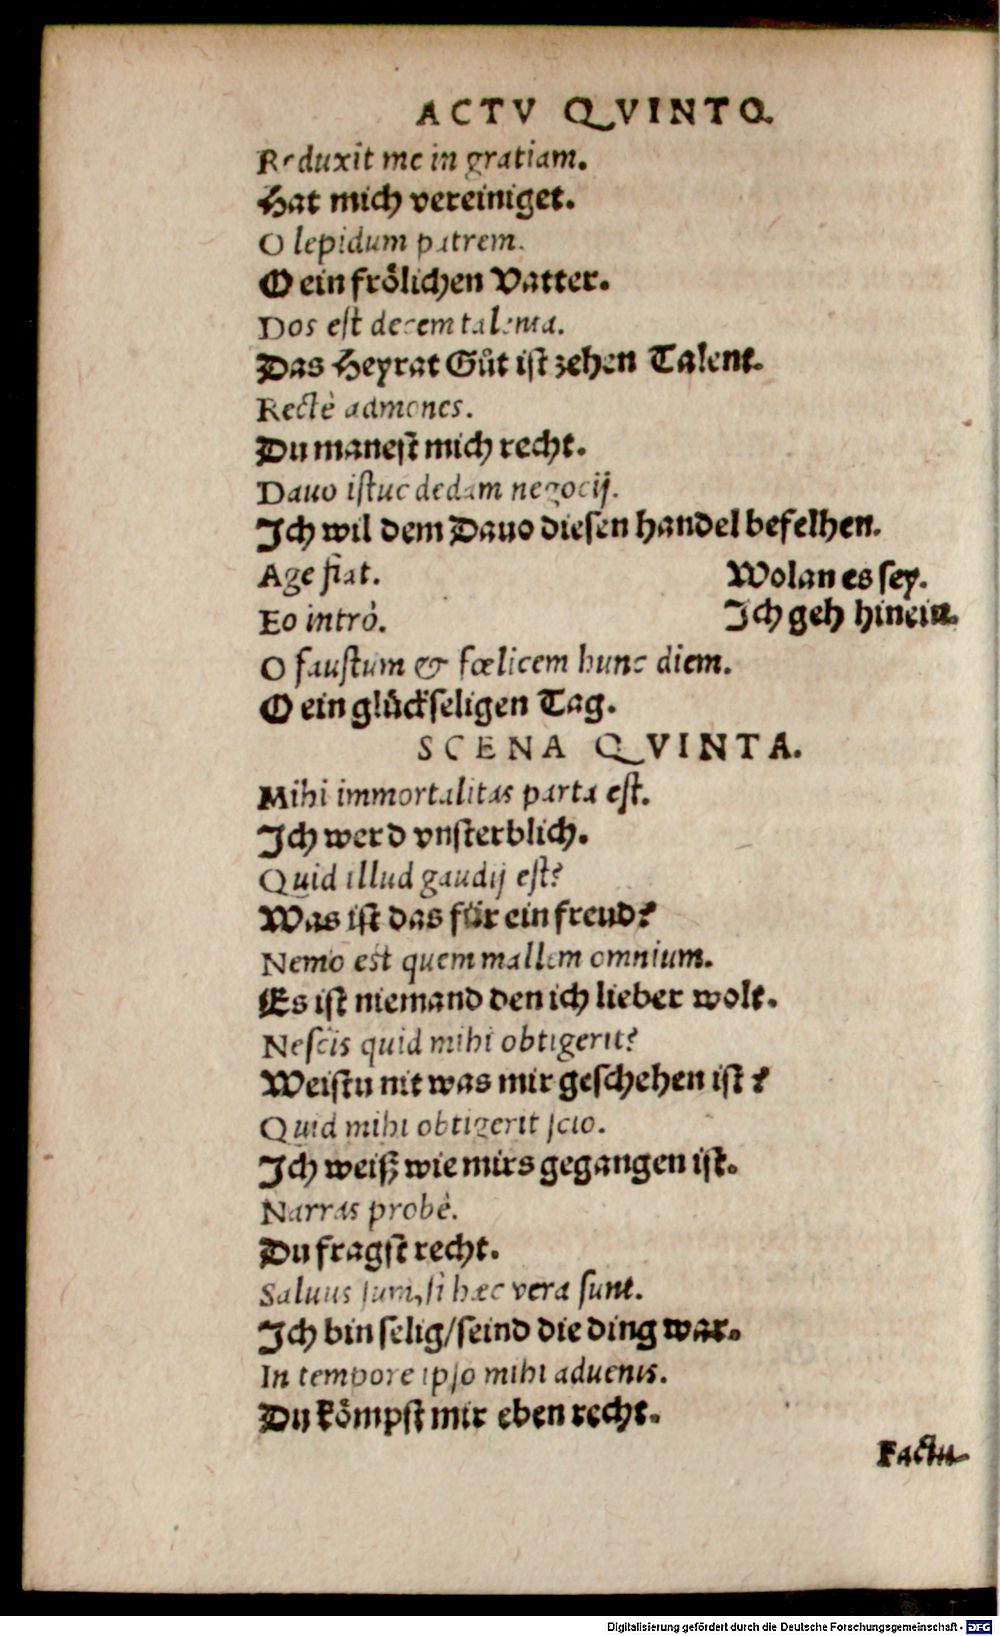 ACTV QVINTO.
Reduxit me in gratiam.
Hat mich vereiniget.
O lepidum patrem.
O ein froͤlichen Vatter.
Dos eſt decem talenta.
Das Heyrat Guͤt iſt zehen Talent.
Rectè admones.
Du maneſt mich recht.
Dauo iſtuc dedam negocij.
Ich wil dem Dauo dieſen handel befelhen.
Age fiat. Wolan es ſey.
Eo intrò. Ich geh hinein.
O fauſtum & fœlicem hunc diem.
O ein gluͤckſeligen Tag.
SCENA QVINTA.
Mihi immortalitas parta eſt.
Ich werd vnſterblich.
Quid illud gaudij eſt?
Was iſt das für ein freud?
Nemo est quem mallem omnium.
Es iſt niemand den ich lieber wolt.
Neſcis quid mihi obtigerit?
Weiſtu nit was mir geſchehen iſt?
Quid mihi obtigerit ſcio.
Ich weiß wie mirs gegangen iſt.
Narras probè.
Du fragſt recht.
Saluus ſum, ſi hæc vera ſunt.
Ich bin ſelig/ſeind die ding war.
In tempore ipſo mihi aduenis.
Du koͤmpſt mir eben recht.
Factu-
Digitalisierung gefördert durch die Deutsche Forschungsgemeinschaft - DFG